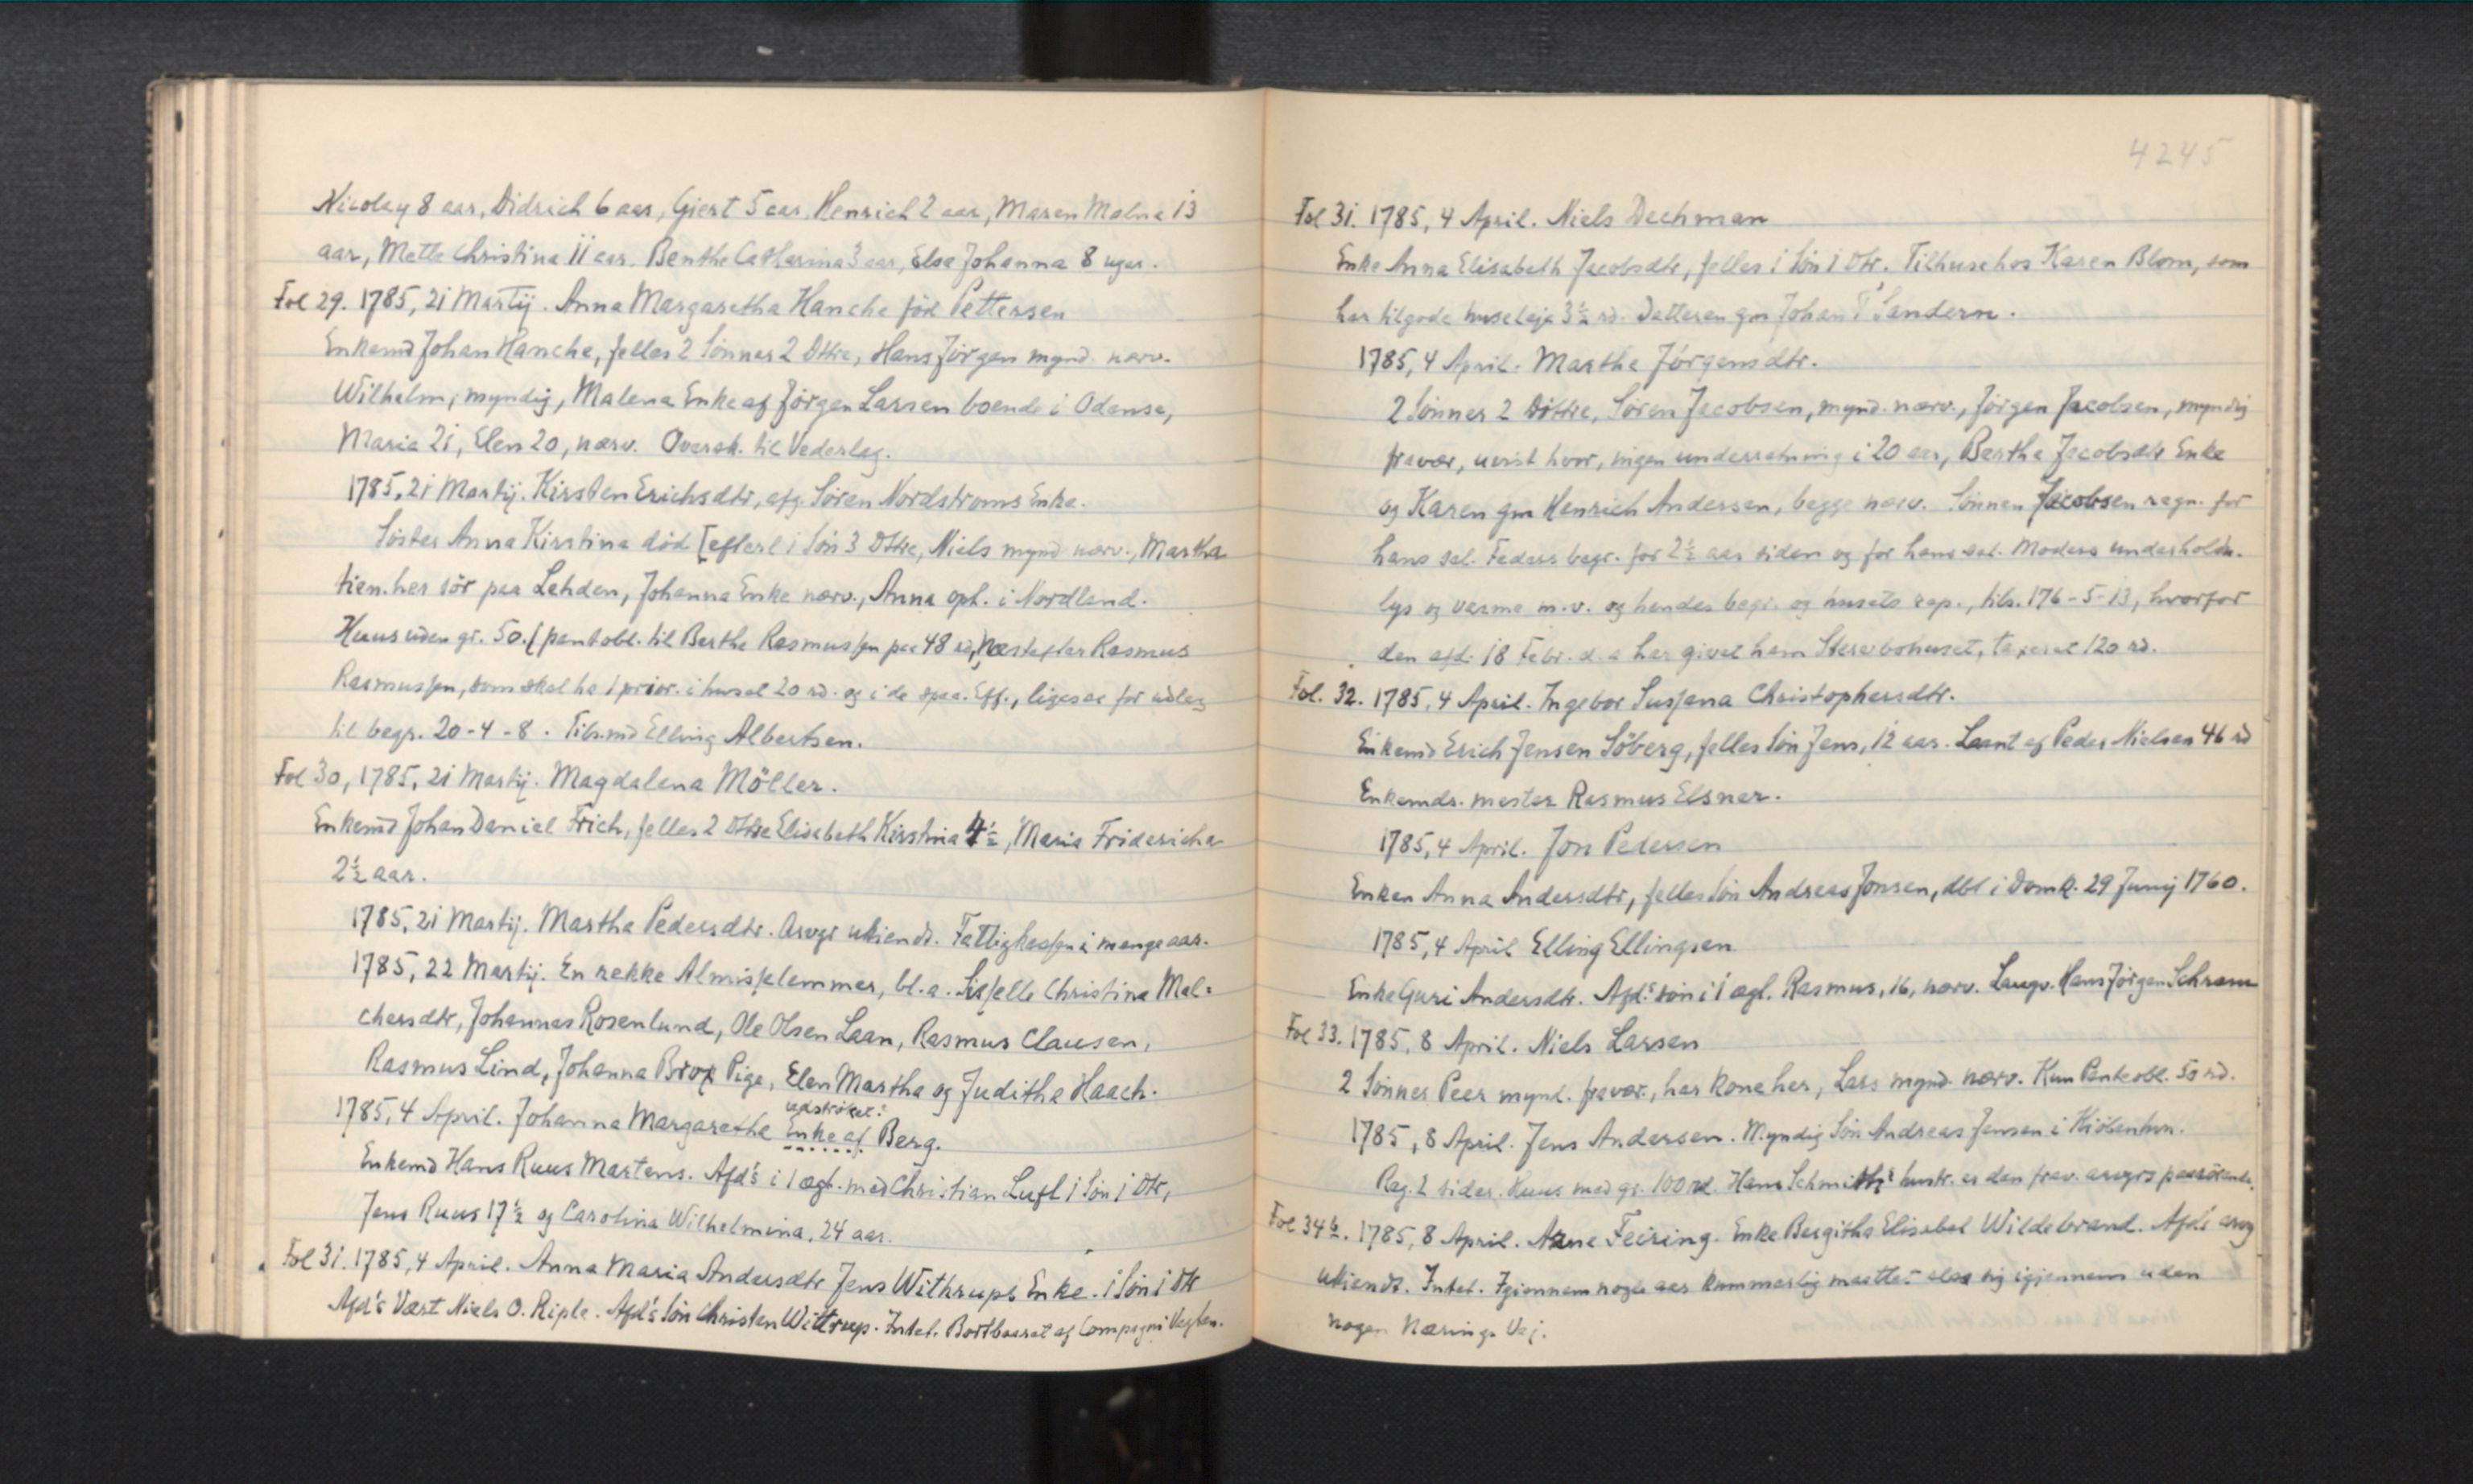 Nicolay 8 aar, Didrich 6 aar, Giert 5 aar, Henrich 2 aar, Maren Malna 13
aar, Mette Christina 11 aar, Benthe Catharina 3 aar, Elsa Johanna 8 uger.
Fol 29. 1785, 21 Martij. Anna Margaretha Hanche föd Pettersen
Enkemd Johan Hanche, felles 2 Sönner 2 Döttre, Hans Jörgen mynd. nærv.
Wilhelm, myndig, Malena Enke af Jörgen Larsen boende i Odense,
Maria 21, Elen 20, nærv. Oversk. til Vederlag.
1785, 21 Martij. Kirsten Erichsdtr, afg. Sören Nordströms Enke.
Söster Anna Kirstina död [efterl 1 Sön 3 Dttre, Niels mynd nærv., Martha
tien. her sör paa Lehden, Johanna Enke nærv., Anna oph. i Nordland.
Huus uden gr. 50. [pantobl. til Berthe Rasmussen paa 48 rd, næst efter Rasmus
Rasmussen, som skal ha 1 prior. i huset 20 rd. og i de Eff., ligesaa for udleg
til begr. 20-4-8. Tils.md Elling Albertsen.
Fol 30, 1785, 21 Martij. Magdalena Möller.
Enkemd Johan Daniel Frich, felles 2 Dttre Elisabeth Kirstina 4½, Maria Fridericha
2½ aar.
1785, 21 Martij. Martha Pedersdtr. Arvgr ukiendt. Fattigkassen i mange aar.
1785, 22 Martij. En rekke Almisselemmer, bl.a. Sisselle Christina Mel-
chersdtr, Johannes Rosenlund, Ole Olsen Laan, Rasmus Clausen,
Rasmus Lind, Johanna Brox Pige, Elen Martha og Juditha Haach.
udströket:
1785, 4 April. Johanna Margarethe Enke af Berg.
Enkemd Hans Ruus Martens. Afd's i 1 ægt. med Christian Luft 1 Sön 1 Dtr,
Jens Ruus 17½ og Carolina Wilhelmina, 24 aar.
Fol 31. 1785, 4 April. Anna Maria Andersdtr Jens Withrups Enke. 1 Sön 1 Dtr
Afd's Vært Niels O. Riple. Afd's Sön Christen Wittrup. Intet. Bortbaaret af Compagni Vegten.
4245
Fol 31. 1785, 4 April. Niels Dechman
Enke Anna Elisabeth Jacobsdtr, felles 1 Sön 1 Dtr. Tilhuse hos Karen Blom, som
har tilgode huseleje 3½ rd. Datteren gm Johan T. Sandern.
1785, 4 April. Marthe Jörgensdtr.
2 Sönner 2 Döttre, Sören Jacobsen, mynd. nærv., Jörgen Jacobsen, myndig
fravær, uvist hvor, ingen underretning i 20 aar, Bertha Jacobsdtr Enke
og Karen gm Henrich Andersen, begge nærv. Sönnen Jacobsen regn. for
hans sal. Faders begr. for 2½ aar siden og for hans sal. Moders underholdn.
lys og varme m.v. og hendes begr. og husets rep., tils. 176-5-13, hvorfor
den afd. 18 Febr. d.a har givet ham Stervbohuset, taxeret 120 rd.
Fol. 32. 1785, 4 April. Ingebor Sussana Christophersdtr.
Enkemd Erich Jensen Söberg, felles Sön Jens, 12 aar. Laant af Peder Nielsen 46 rd
Enkemds. mester Rasmus Elsner.
1785, 4 April. Jon Pedersen
Enken Anna Andersdtr, felles Sön Andreas Jonsen, dbt i Domk. 29 Junij 1760.
1785, 4 April Elling Ellingsen
Enke Guri Andersdtr. Afd's sön i 1 ægt. Rasmus, 16, nærv. Laugv. Hans Jörgen Schram
Fol 33. 1785, 8 April. Niels Larsen
2 Sönner Peer mynd. fravær., har kone her, Lars mynd. nærv. Kun Panteobl. 50 rd.
1785, 8 April. Jens Andersen. Myndig Sön Andreas Jensen i Kiöbenhvn.
Reg. 2 sider. Huus med gr. 100 rd. Hans Schmidts hustr. er den frav. arvgrs paarörende.
Fol 34b. 1785, 8 April. Arne Feiring. Enke Bergitha Elisabet Wildebrand. Afd's arvg
ukiendt. Intet. Igiennem nogle aar kummerlig maattet slaa sig igjennem uden
nogen Nærings Vej.